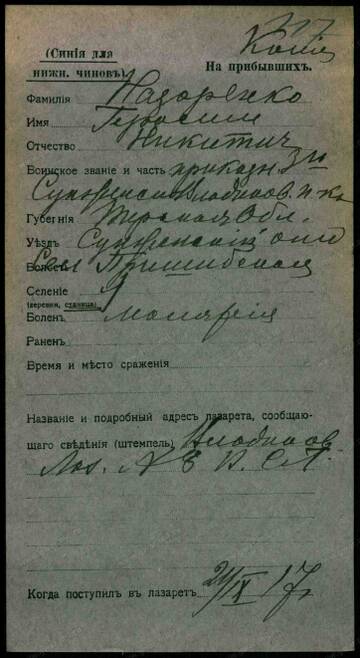 Копія
(Синія для
нижн. чиновъ).
На прибывшихъ.
Фамилія Назаренко
Имя Герасим
Отчество Никитич
Воинское званіе и часть приказн 3й
Сунженско Владикав. п. ка
Губернія Терская Обл.
Уѣздъ Сунженскій отд
Волость Пришибская
Селеніе
(деревня, станица)
Боленъ малярія
Раненъ
Время и мѣсто сраженія
Названіе и подробный адресъ лазарета, сообщаю-
щаго свѣдѣнія (штемпель) Владикав
Лаз.
Когда поступилъ въ лазаретъ 24/IX 17г